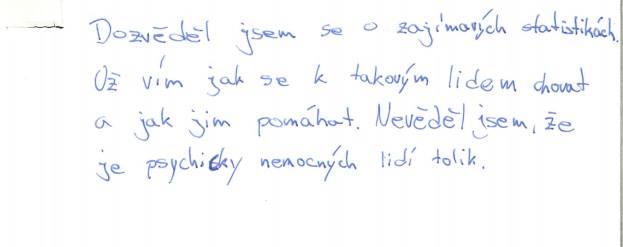 Dozvěděl jsem se o zajímavých statistikách.
Už vím jak se k takovým lidem chovat
a jak jim pomáhat. Nevěděl jsem, že
je psychicky nemocných lidí tolik.